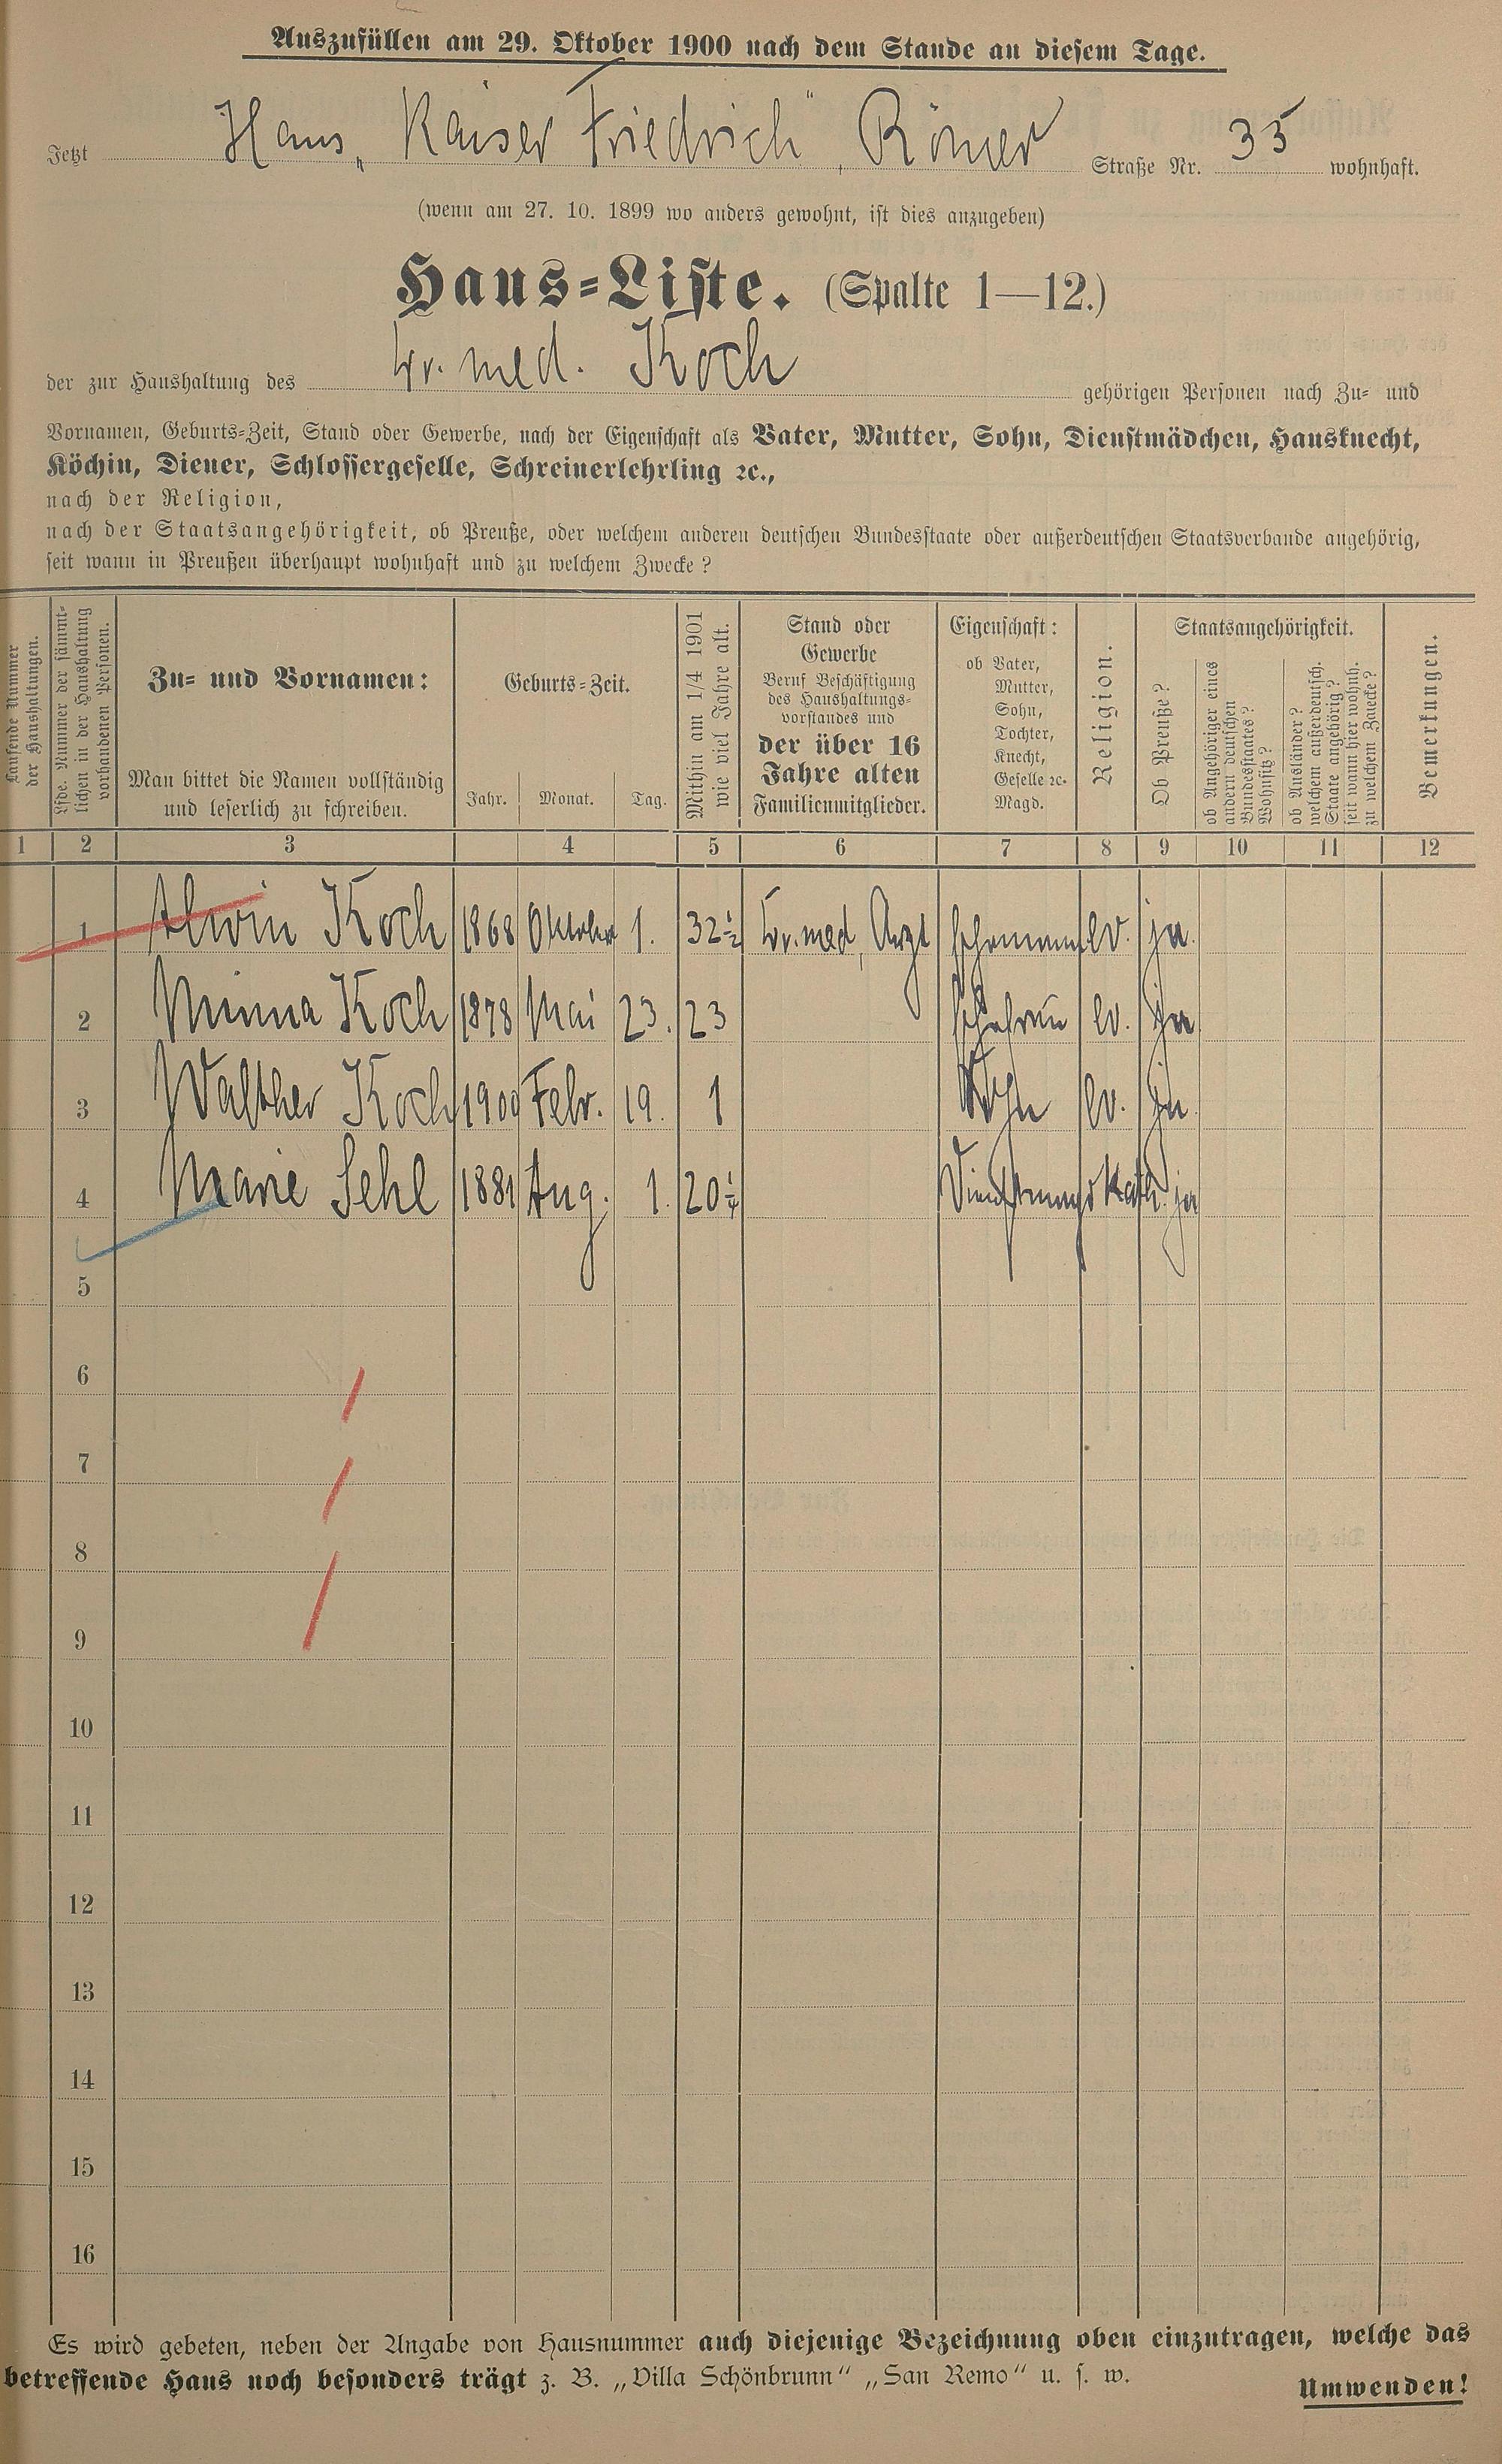 Auszufüllen am 29. Oktober 1900 nach dem Stande an diesem Tage.
Jetzt Haus „Kaiser Friedrich“, Römer Straße Nr. 35 wohnhaft.
(wenn am 27. 10. 1899 wo anders gewohnt, ist dies anzugeben)
Haus=Liste. (Spalte 1—12.)
der zur Haushaltung des Dr. med. Koch gehörigen Personen nach Zu= und
Vornamen, Geburts=Zeit, Stand oder Gewerbe, nach der Eigenschaft als Vater, Mutter, Sohn, Dienstmädchen, Hausknecht,
Köchin, Diener, Schlossergeselle, Schreinerlehrling ꝛc.,
nach der Religion,
nach der Staatsangehörigkeit, ob Preuße, oder welchem anderen deutschen Bundesstaate oder außerdeutschen Staatsverbande angehörig,
seit wann in Preußen überhaupt wohnhaft und zu welchem Zwecke?
Laufende Nummer
der Haushaltungen.
Lfde. Nummer der sämmt=
lichen in der Haushaltung
vorhandenen Personen.
Zu= und Vornamen:
Man bittet die Namen vollständig
und leserlich zu schreiben.
Geburts=Zeit.
Jahr. Monat. Tag.
Mithin am 1/4 1901
wie viel Jahre alt.
Stand oder
Gewerbe
Beruf Beschäftigung
des Haushaltungs=
vorstandes und
der über 16
Jahre alten
Familienmitglieder.
Eigenschaft:
ob Vater,
Mutter,
Sohn,
Tochter,
Knecht,
Geselle ꝛc.
Magd.
Religion.
Staatsangehörigkeit.
Ob Preuße?
ob Angehöriger eines
andern deutschen
Bundesstaates?
Wohnsitz?
ob Ausländer?
welchem außerdeutsch.
Staate angehörig?
seit wann hier wohnh.
zu welchem Zwecke?
Bemerkungen.
1 2 3 4 5 6 7 8 9 10 11 12
1 Alwin Koch 1868 Oktober 1. 32½ Dr. med, Arzt Ehemann ev. ja.
2 Minna Koch 1878 Mai 23. 23 Ehefrau ev. ja
3 Walther Koch 1900 Febr. 19. 1 Sohn ev. ja.
4 Marie Sehl 1881 Aug. 1. 20¼ Kath. ja
5
6
7
8
9
10
11
12
13
14
15
16
Es wird gebeten, neben der Angabe von Hausnummer auch diejenige Bezeichnung oben einzutragen, welche das
betreffende Haus noch besonders trägt z. B. „Villa Schönbrunn“ „San Remo“ u. s. w.
Umwenden!